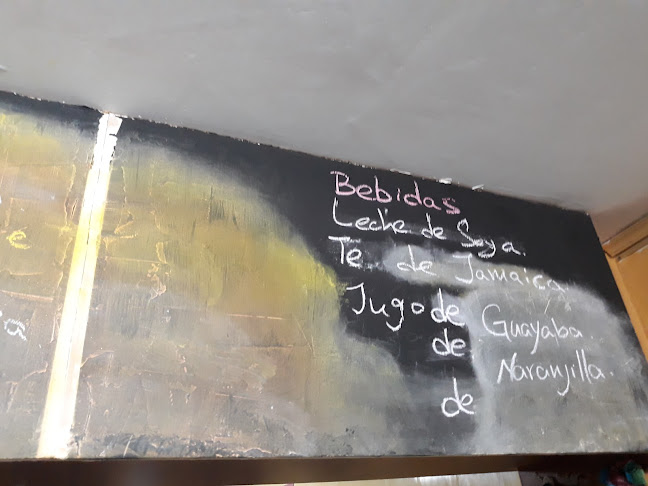 Bebidas
Leche de Soya.
Te de Jamaica.
Jugo de Guayaba.
de Naranjilla.
de